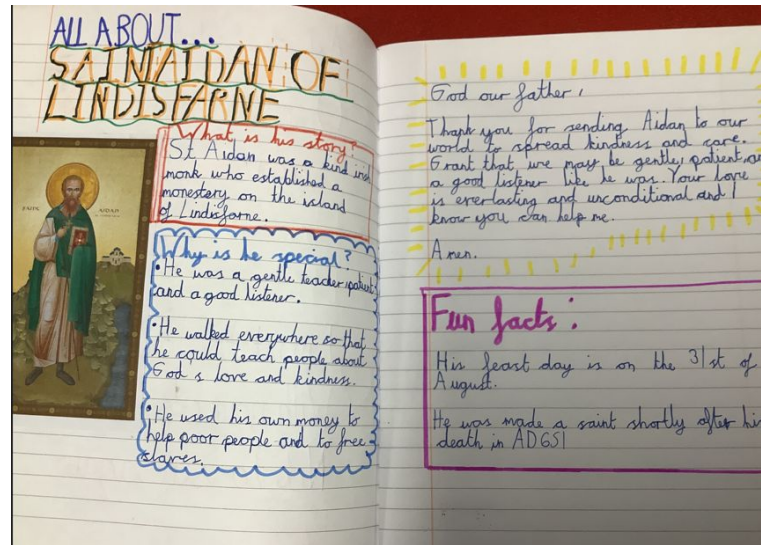 ALL ABOUT...
SAINT AIDAN OF
LINDISFARNE
What is his story?
St Aidan was a kind irish
monk who established a
monestery on the island
of Lindisfarne.
Why is he special?
•He was a gentle teacher, patient
and a good listener.
•He walked everywhere so that
he could teach people about
God s love and kindness.
•He used his own money to
help poor people and to free
slaves.
God our father,
Thank you for sending Aidan to our
world to spread kindness and care.
Grant that we may be gentle, patient,
a good listener like he was. Your love
is everlasting and unconditional and I
know you can help me.
Amen.
Fun facts:
His feast day is on the 31st of
August.
He was made a saint shortly after his
death in AD651